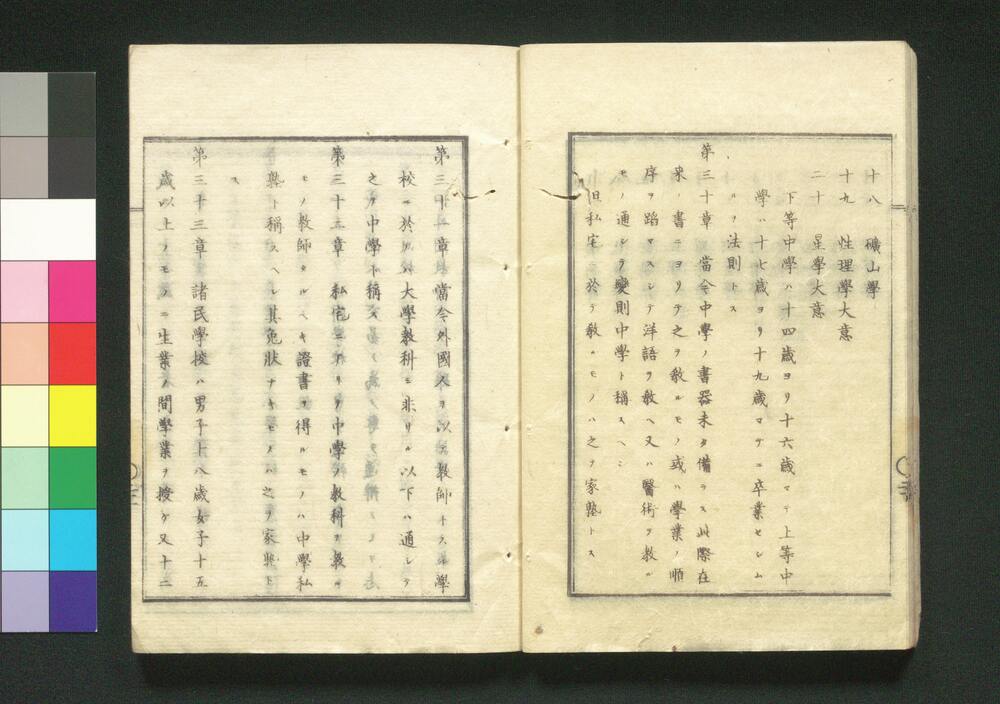 十八 礦山學
十九 性理學大意
二十 星學大意
下等中學ハ十四歳ヨリ十六歳マテ上等中
學ハ十七歳ヨリ十九歳マテニ卒業セシム
ルヲ法則トス
第三十章 當今中學ノ書器未タ備ラス此際在
來ノ書ニヨリテ之ヲ敎ルモノ或ハ學業ノ順
序ヲ蹈マスシテ洋語ヲ敎ヘ又ハ醫術ヲ敎ル
モノ通シテ變則中學ト稱スヘシ
但私宅ニ於テ敎ルモノハ之ヲ家塾トス
第三十一章 當今外國人ヲ以テ敎師トスル學
校ニ於テハ大學敎科ニ非サル以下ハ通シテ
之ヲ中學ト稱ス
第三十二章 私宅ニアリテ中學ノ敎科ヲ敎ル
モノ敎師タルヘキ證書ヲ得ルモノハ中學私
塾ト稱スヘシ其免狀ナキモノハ之ヲ家塾ト
ス
第三十三章 諸民學校ハ男子十八歳女子十五
歳以上ノモノニ生業ノ間學業ヲ授ケ又十二